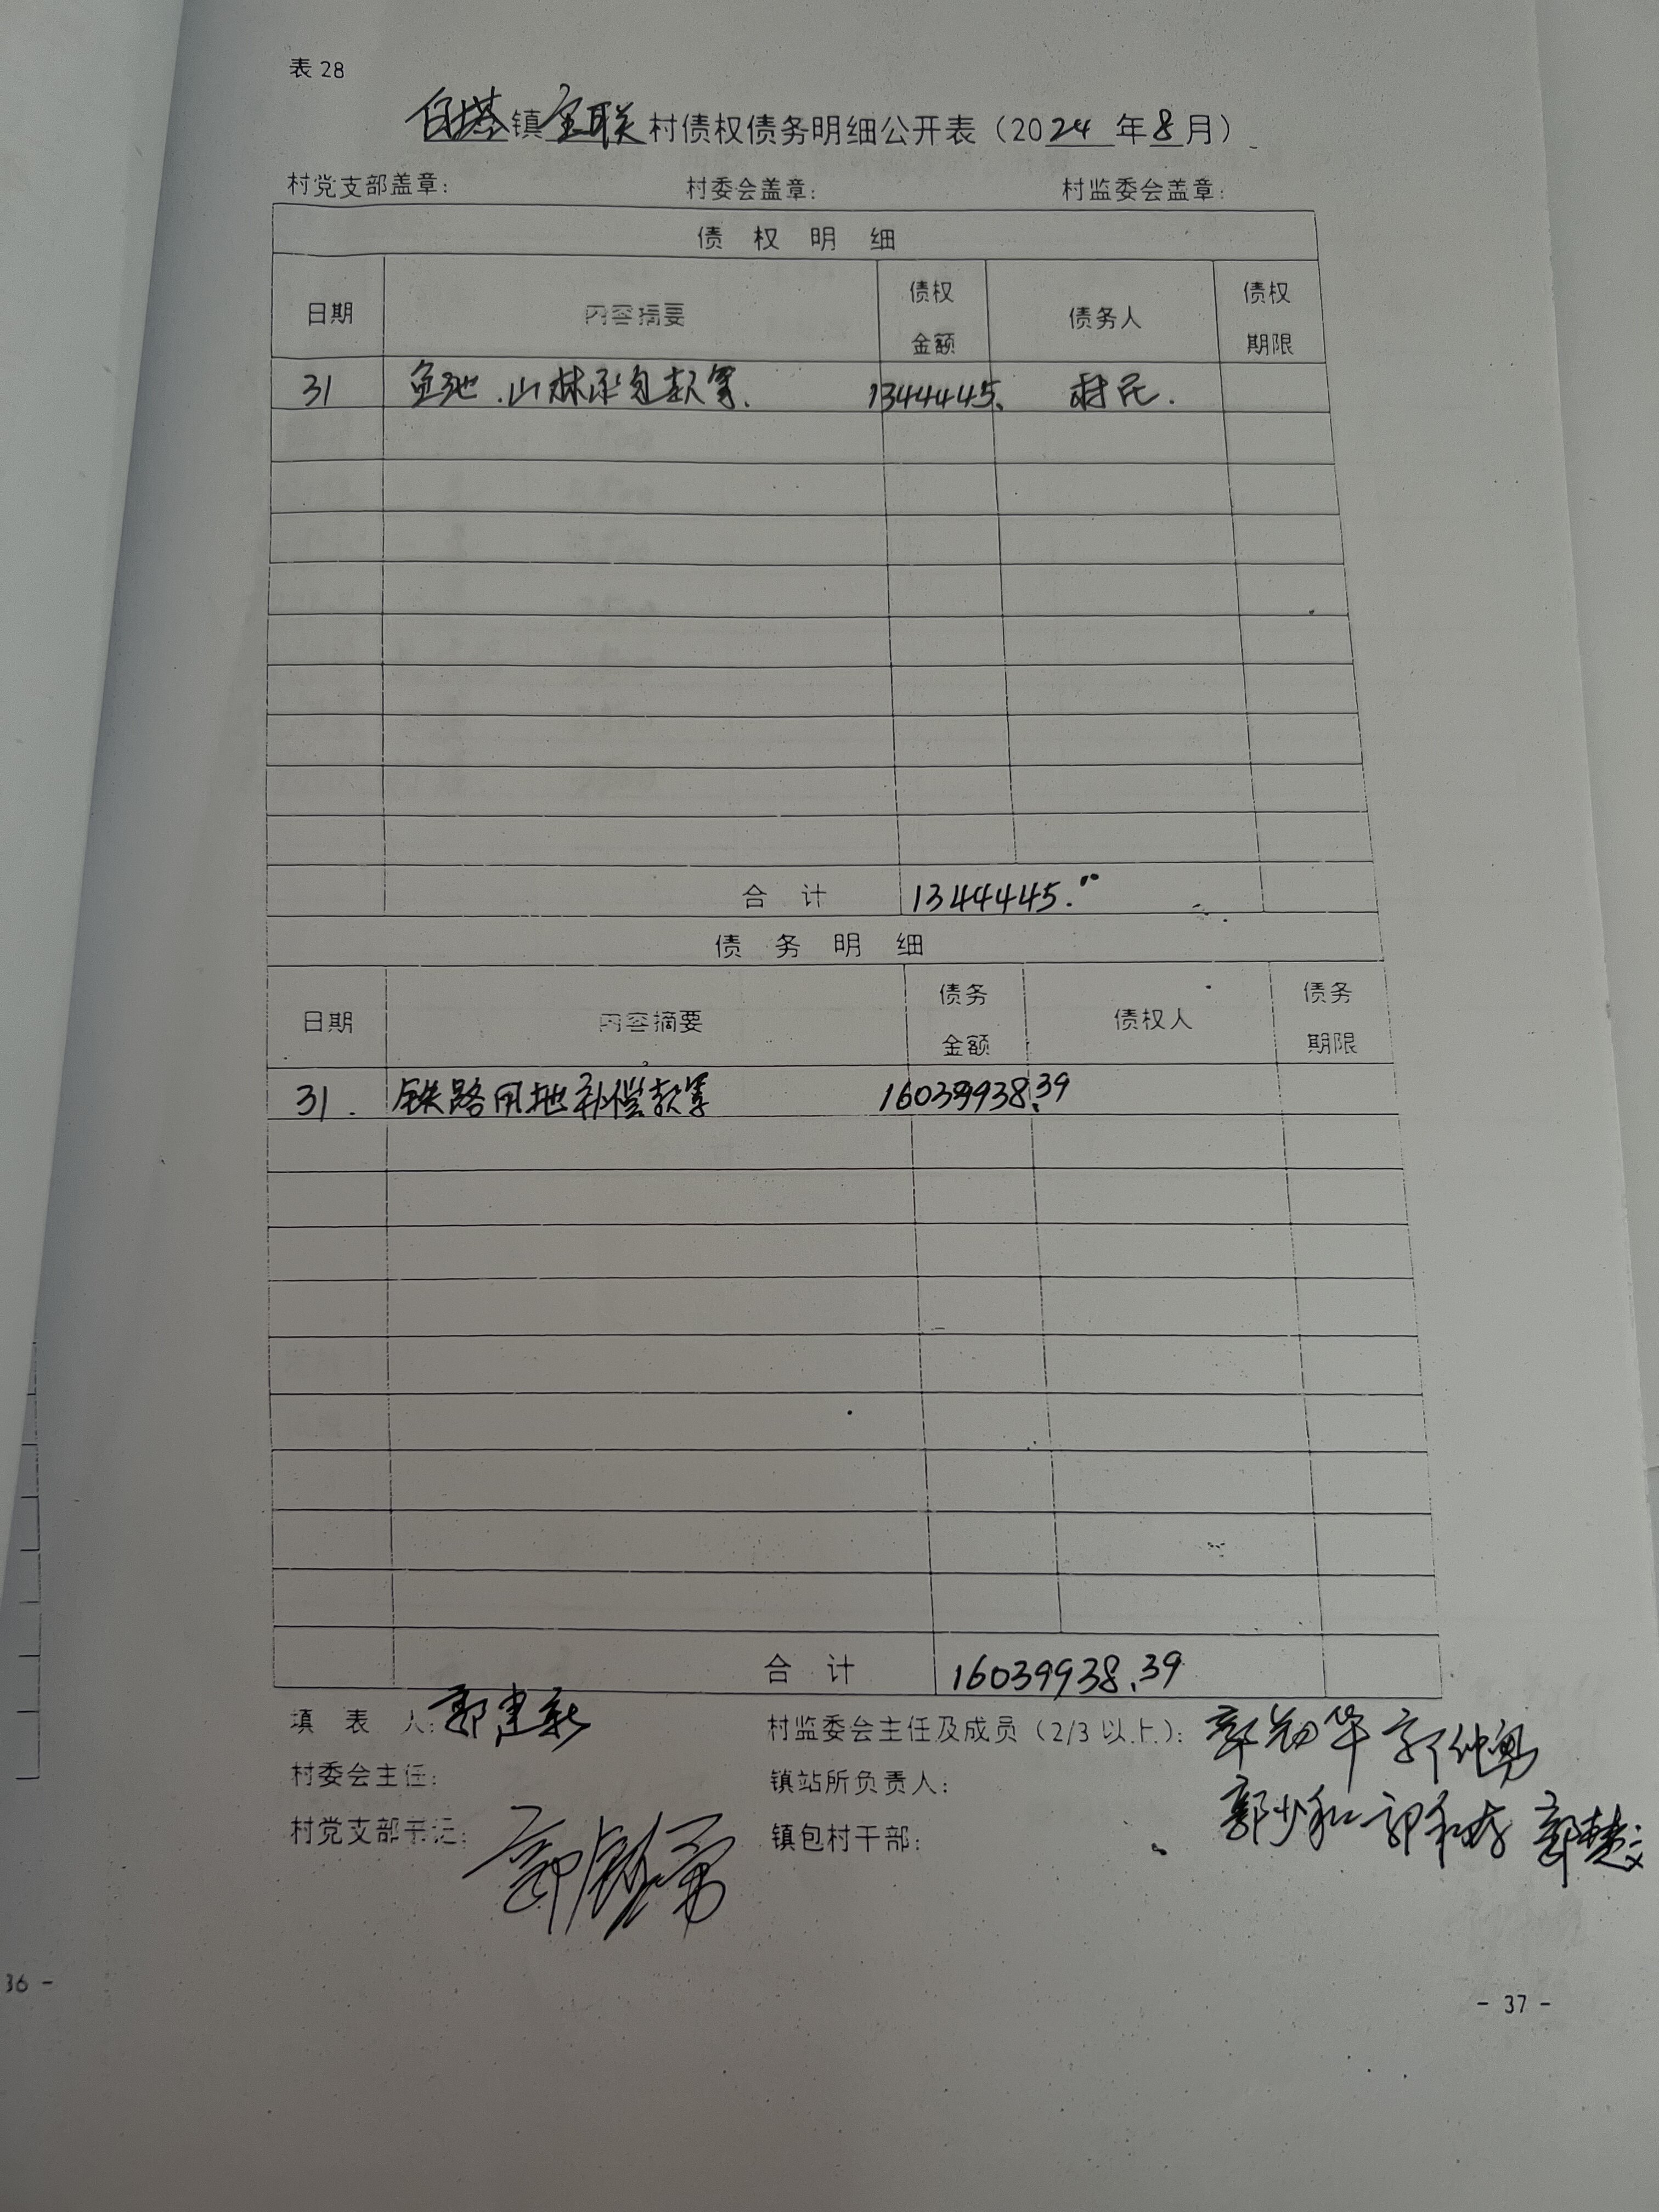 表 28
白塔镇宝联村债权债务明细公开表（2024年8月）
村党支部盖章： 村委会盖章： 村监委会盖章：
债 权 明 细
日期 内容摘要 债权金额 债务人 债权期限
31 鱼池.山林承包款等. 1344445. 村民.
合 计 1344445.00
债 务 明 细
日期 内容摘要 债务金额 债权人 债务期限
31. 铁路用地补偿款等 16039938.39
合 计 16039938.39
填 表 人：郭建新 村监委会主任及成员（2/3 以上）：
村委会主任： 镇站所负责人：
郭少和
村党支部书记： 镇包村干部：
36 -
- 37 -